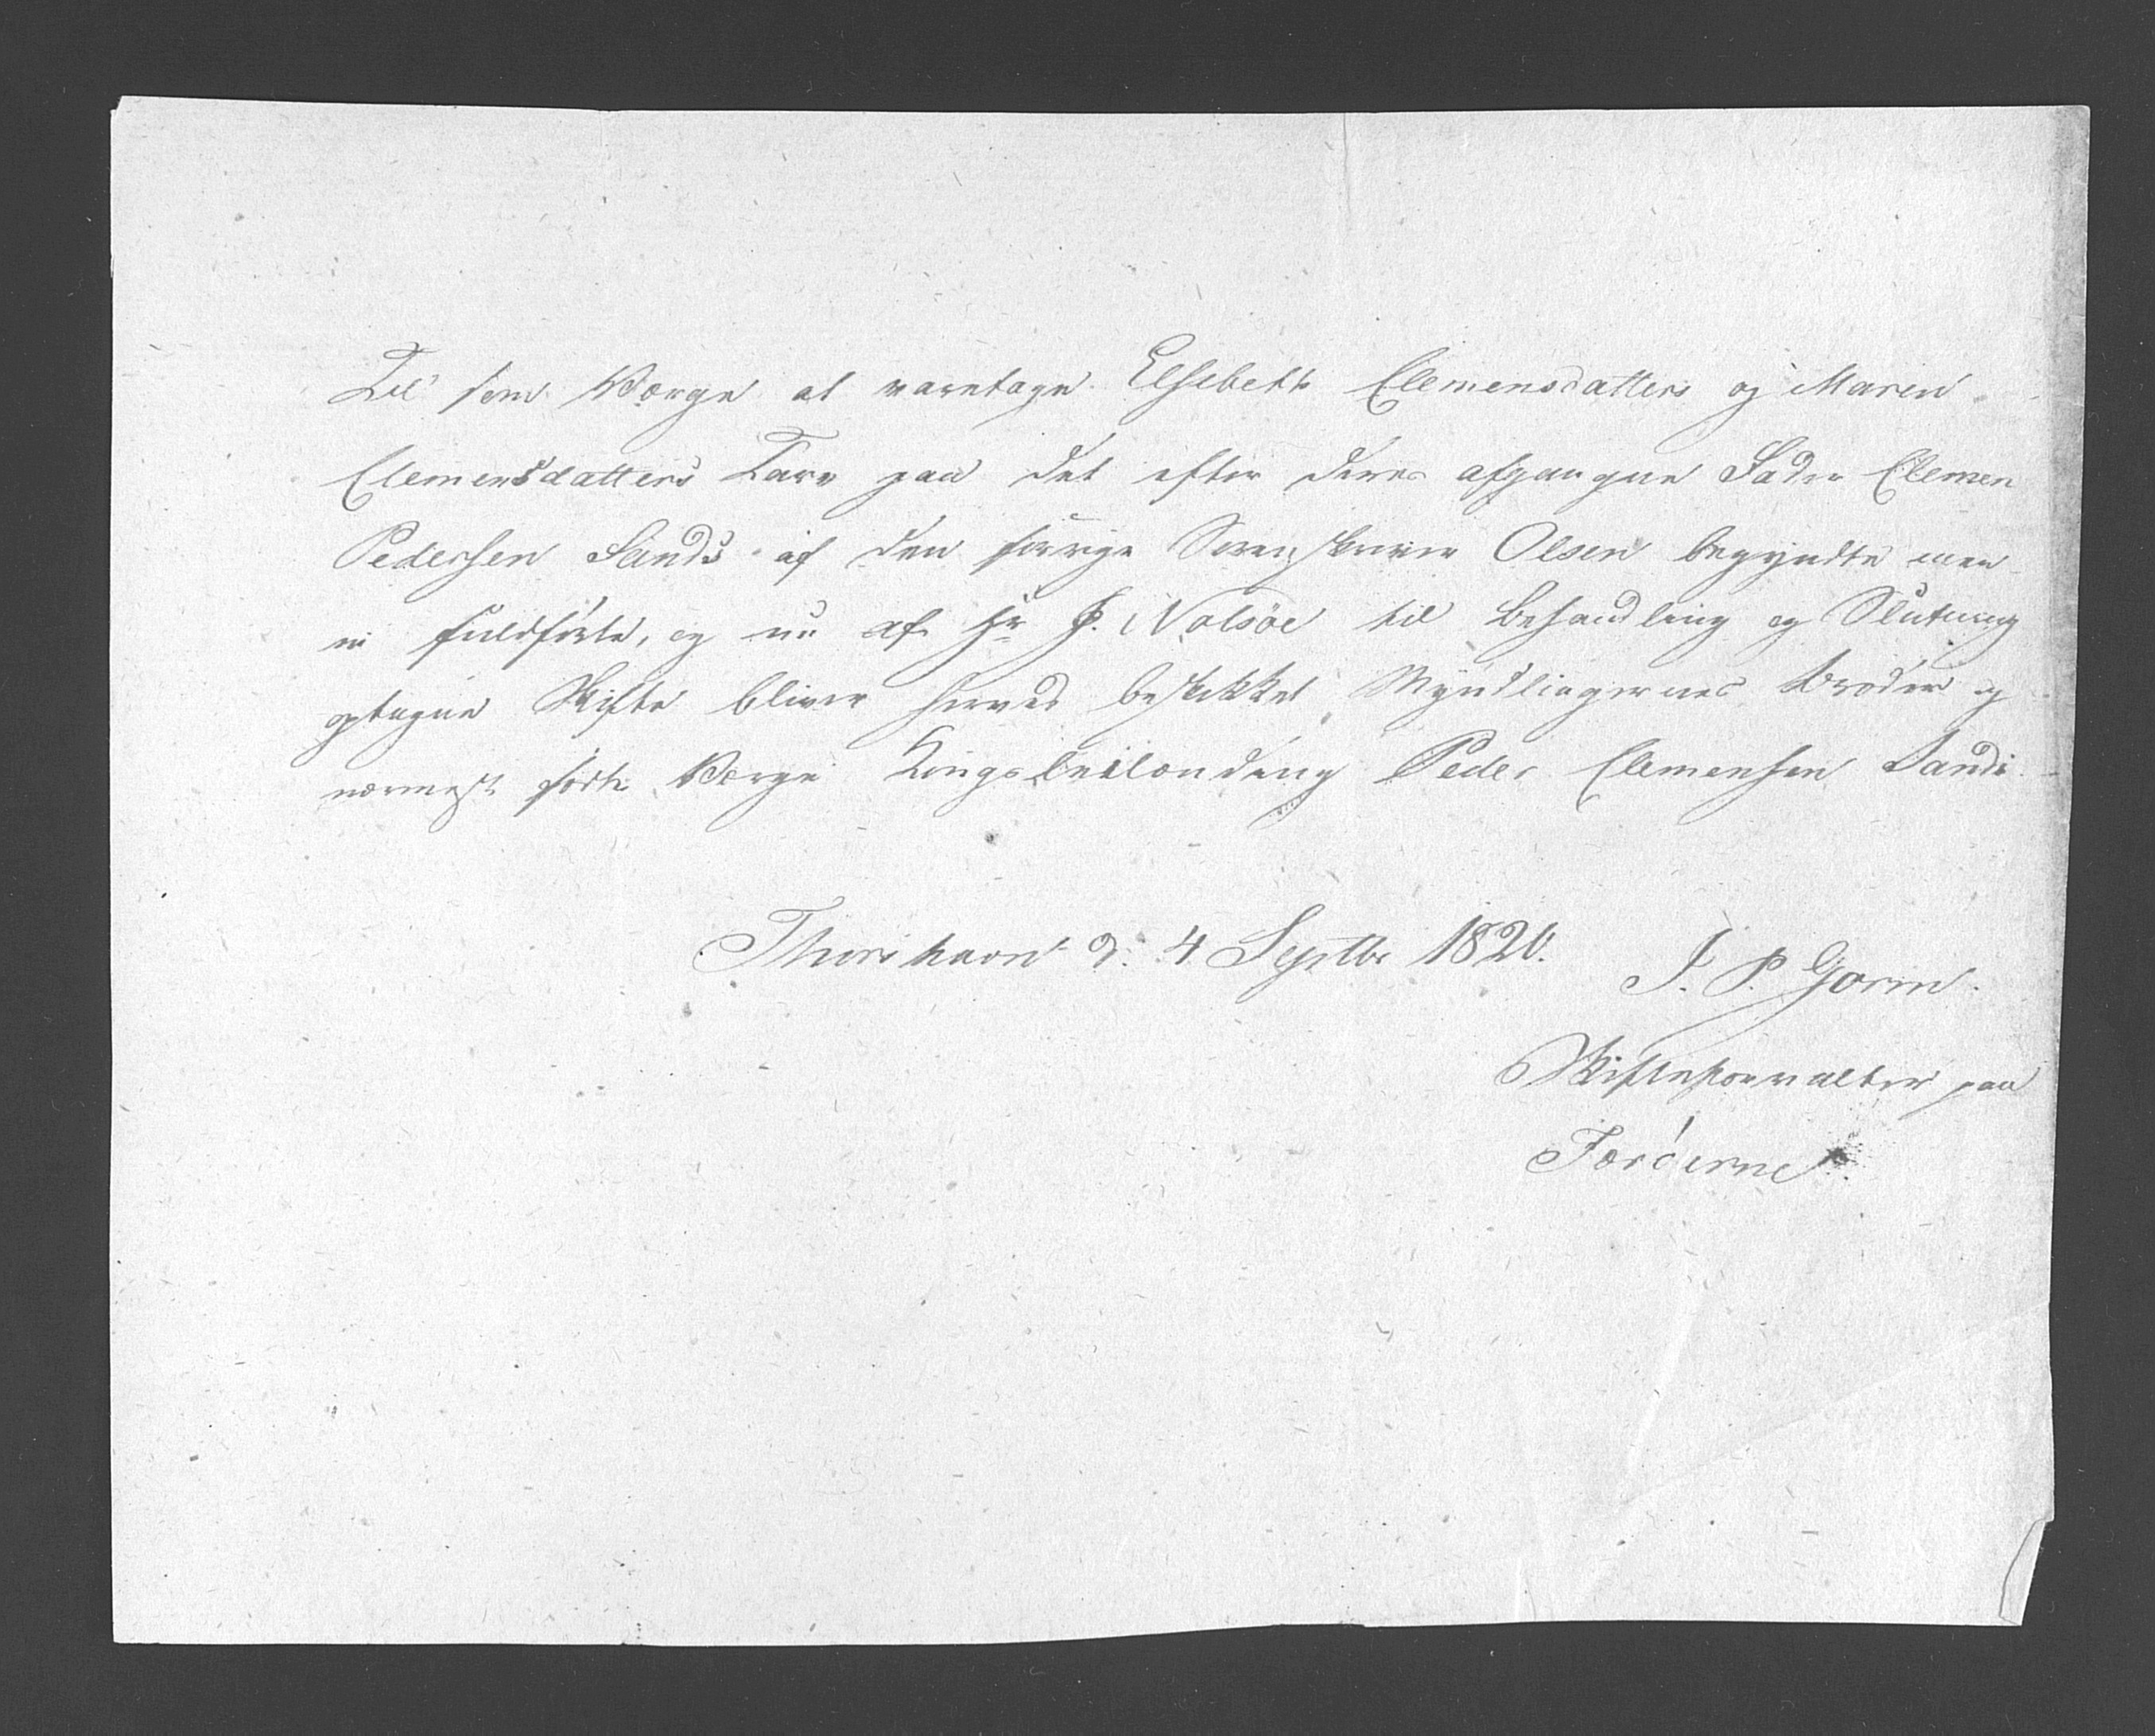 Til som Værge at varetage Elsebeth Clemensdatters og Maren
Clemensdatters Tarv paa det efter deres afgangne Fader Clemen
Pedersen Sands af den forrige Sorenskriver Olsen begyndte men
ei fuldførte, og nu af Hr J. Nolsöe til Behandling og Slutning
optagne Skifte bliver herved beskikket Myndlingernes Broder og
nærmest fødte Værge Kongsbeilænding Peder Clemensen Sands
Thorshavn d. 4 Septbr 1820.
J. P. Gorm.
Skifteforvalter paa
Færöerne